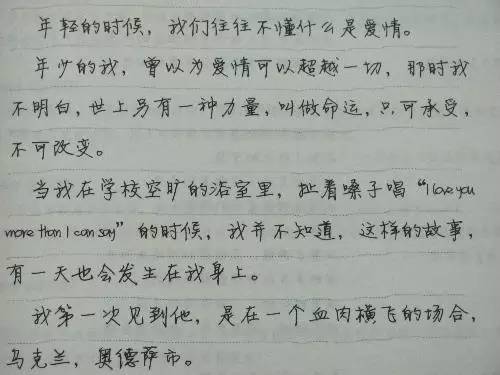 年轻的时候，我们往往不懂什么是爱情。
年少的我，曾以为爱情可以超越一切，那时我
不明白，世上另有一种力量，叫做命运，只可承受，
不可改变。
当我在学校空旷的浴室里，扯着嗓子唱“I love you
more than I can say”的时候，我并不知道，这样的故事，
有一天也会发生在我身上。
我第一次见到他，是在一个血肉横飞的场合，
乌克兰，奥德萨市。